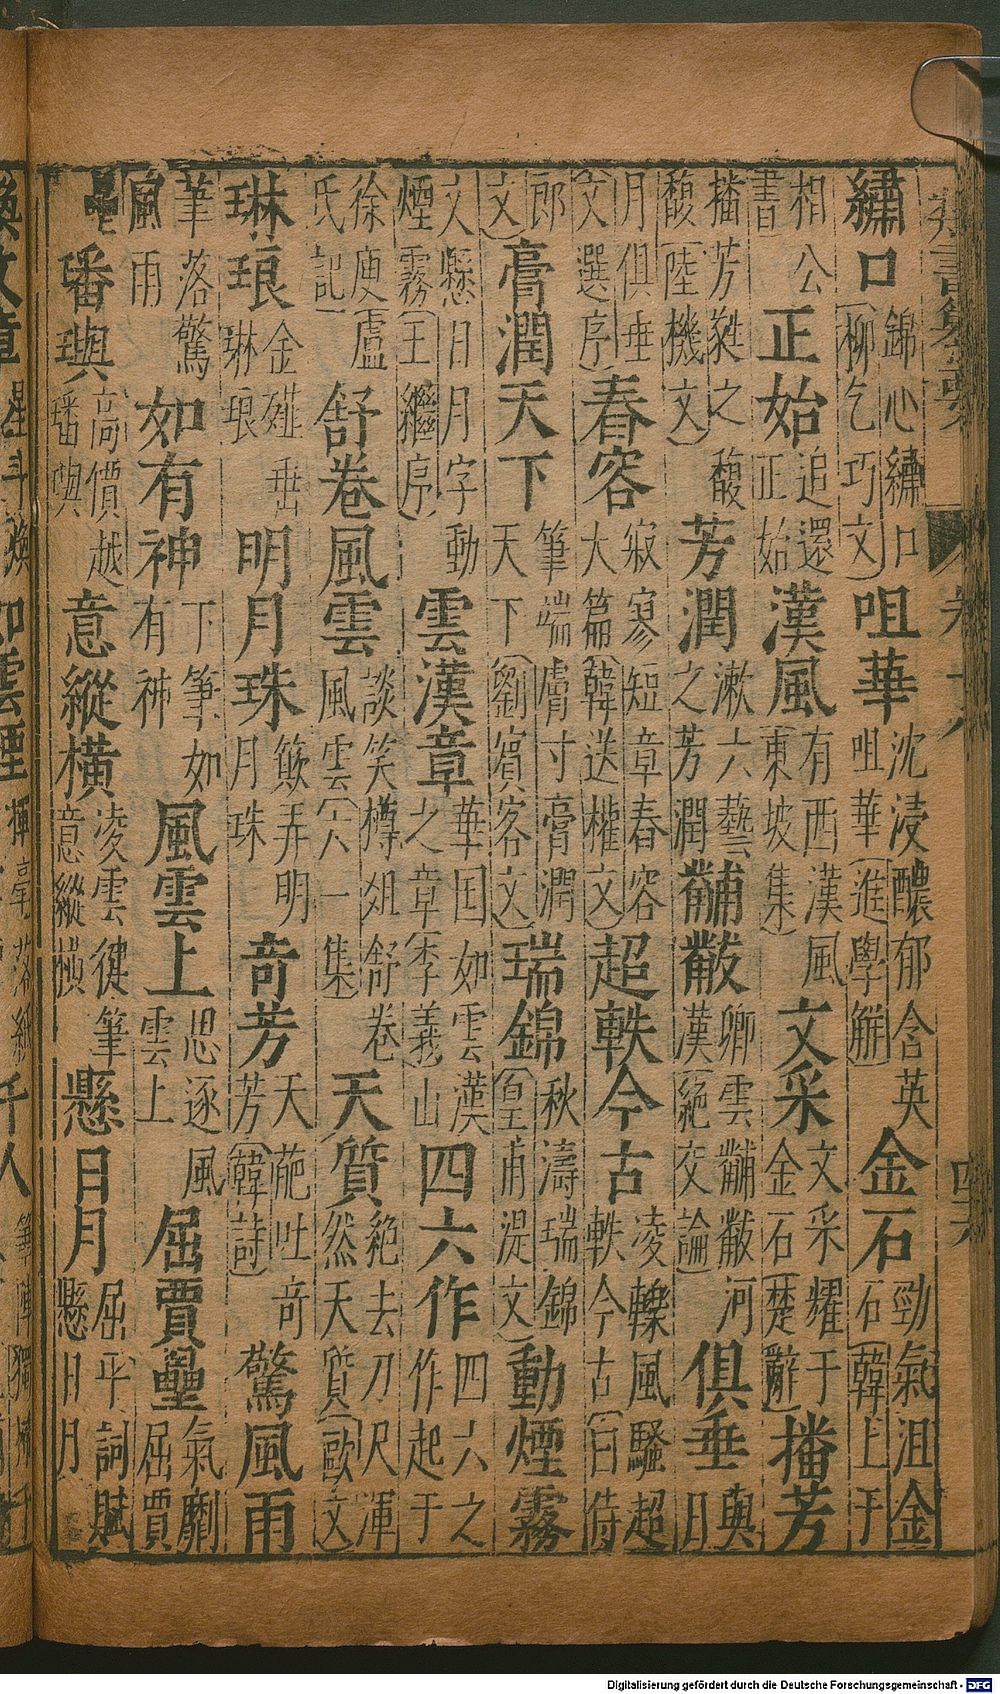 繡口錦心繡口柳乞巧文咀華沈浸醲郁含英咀華進學解金石勁氣沮金石韓上于
相公書正始追還正始漢風有西漢風東坡集文采文采耀于金石楚辭播芳
播芳蕤之馥馥陸機文芳潤漱六藝之芳潤黼黻卿雲黼黻河漢絕交論俱垂與日
月俱垂文選序春容寂寥短章春容大篇韓送權文超軼今古凌轢風騷超軼今古白侍
郎文膏潤天下筆端膚寸膏潤天下劉賓客文瑞錦秋濤瑞錦皇甫湜文動煙霧
文懸日月字動煙霧王繼序雲漢章華国如雲漢之章李義山四六作四六之作起于
徐庾盧氏記舒卷風雲談笑樽俎舒卷風雲六一集天質絕去刀尺渾然天質歐文
琳琅金薤垂琳琅明月珠簸弄明月珠奇芳天葩吐奇芳韓詩驚風雨
筆落驚風雨如有神下筆如有神風雲上思逐風雲上屈賈壘氣劘屈賈
壘璠璵高價越璠璵意縱橫凌雲健筆意縱橫懸日月屈平詞賦懸日月
Digitalisierung gefördert durch die Deutsche Forschungsgemeinschaft - DFG